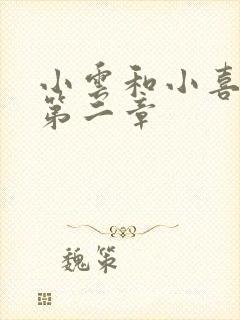 小雪和小喜
第二章
魏策